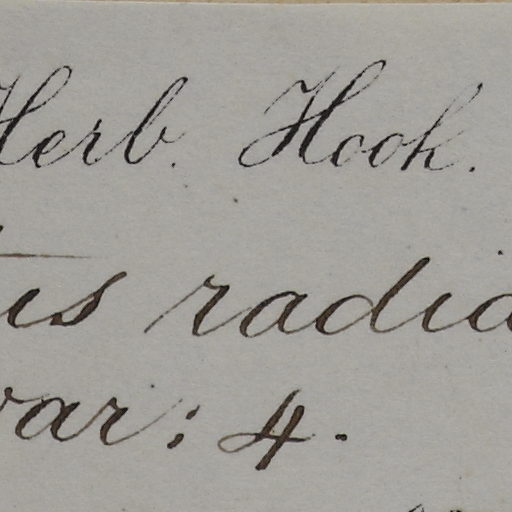 Herb. Hook.
tus radia
var: 4.